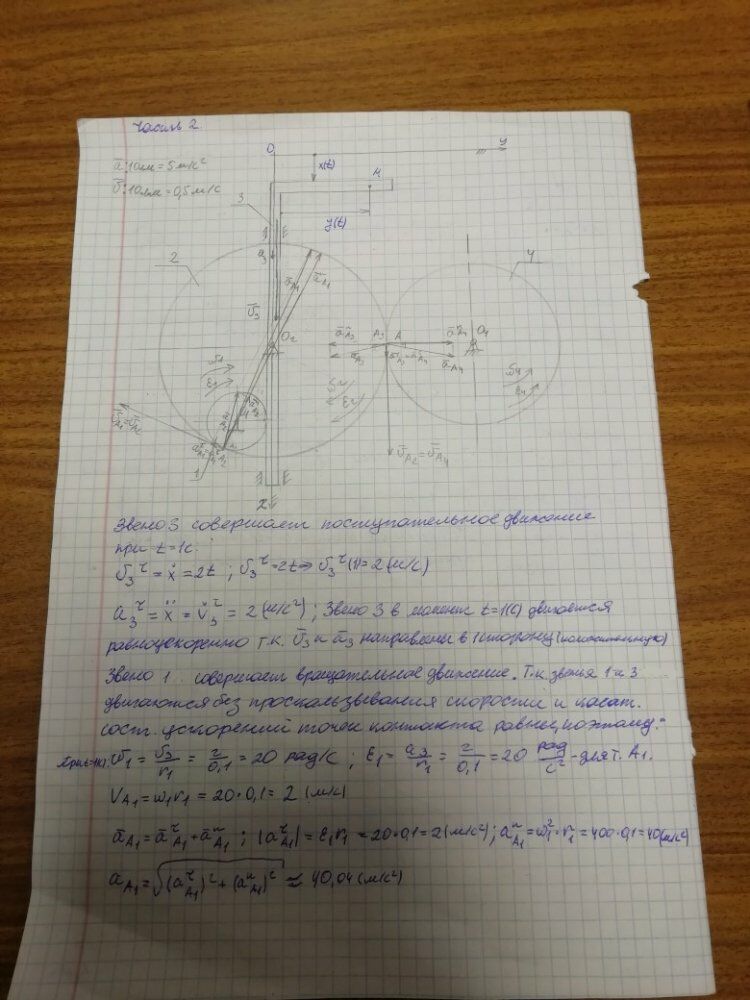 Часть 2.
O
y
x(t)
M
ā: 10мм = 5 м/с²
v̄: 10мм = 0,5 м/с
3
y(t)
2
4
a₃
ā_A₁
v̄₃
O₂
A₂ A
O₄
v̄_A₂ = v̄_A₄
1
x
Звено 3 совершает поступательное движение
при t=1с.
v₃^τ = ẋ = 2t ; v₃^τ = 2t ⇒ v₃^τ(1) = 2 (м/с)
a₃^τ = ẍ = v̇₃^τ = 2 (м/с²) ; Звено 3 в момент t=1(с) движется
равноускоренно т.к. v̄₃ и ā₃ направлены в 1 сторону (положительную)
Звено 1 совершает вращательное движение. Т.к. звенья 1 и 3
двигаются без проскальзывания скорости и касат.
сост. ускорений точек контакта равны, поэтому:
При t=1(с): ω₁ = v₃/r₁ = 2/0,1 = 20 рад/с ; ε₁ = a₃/r₁ = 2/0,1 = 20 рад/с² - для т. A₁.
V_A₁ = ω₁r₁ = 20·0,1 = 2 (м/с)
ā_A₁ = ā^τ_A₁ + ā^n_A₁ ; |a^τ_A₁| = ε₁r₁ = 20·0,1 = 2 (м/с²) ; a^n_A₁ = ω₁²·r₁ = 400·0,1 = 40 (м/с²)
a_A₁ = √((a^τ_A₁)² + (a^n_A₁)²) ≈ 40,04 (м/с²)